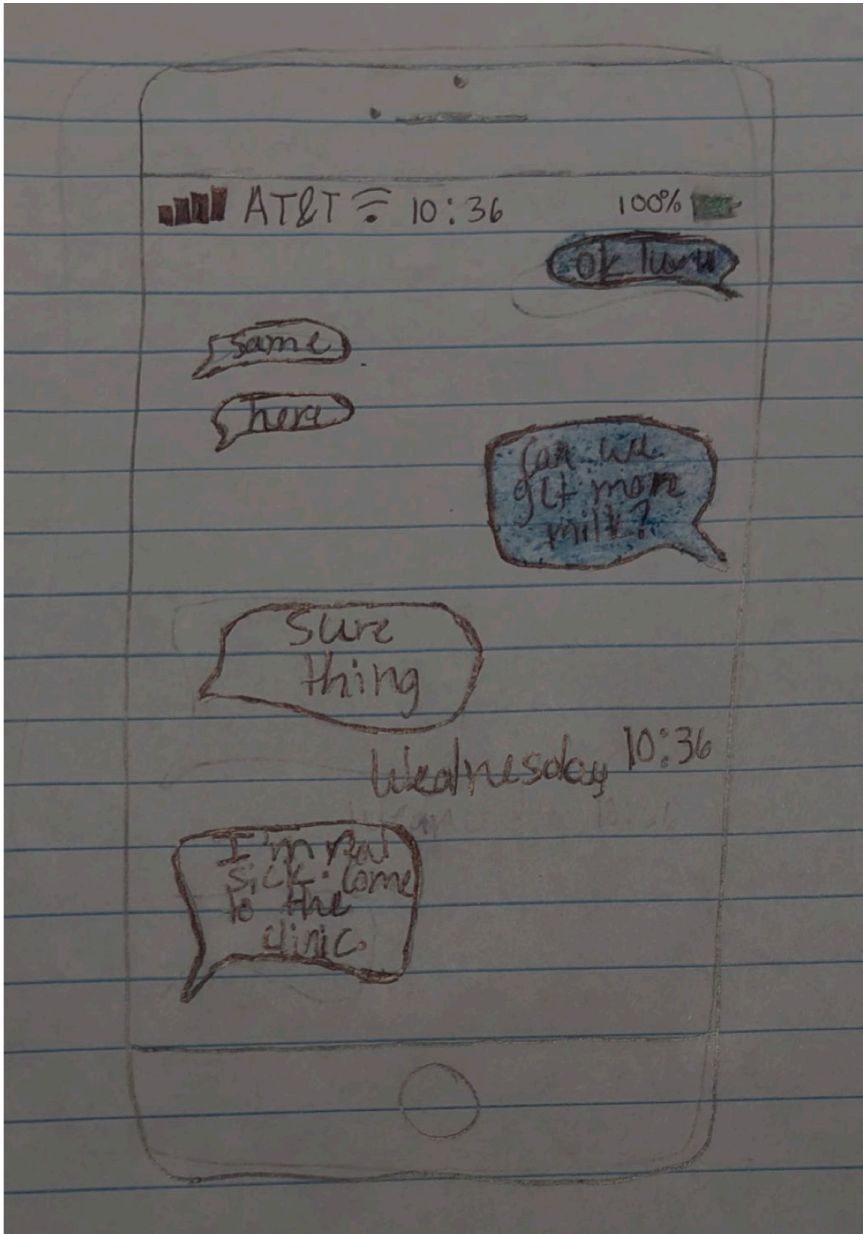 AT&T 10:36 100%
ok
same
here
Can we
get more
milk?
Sure
thing
Wednesday 10:36
I'm
sick. Come
to the
clinic.